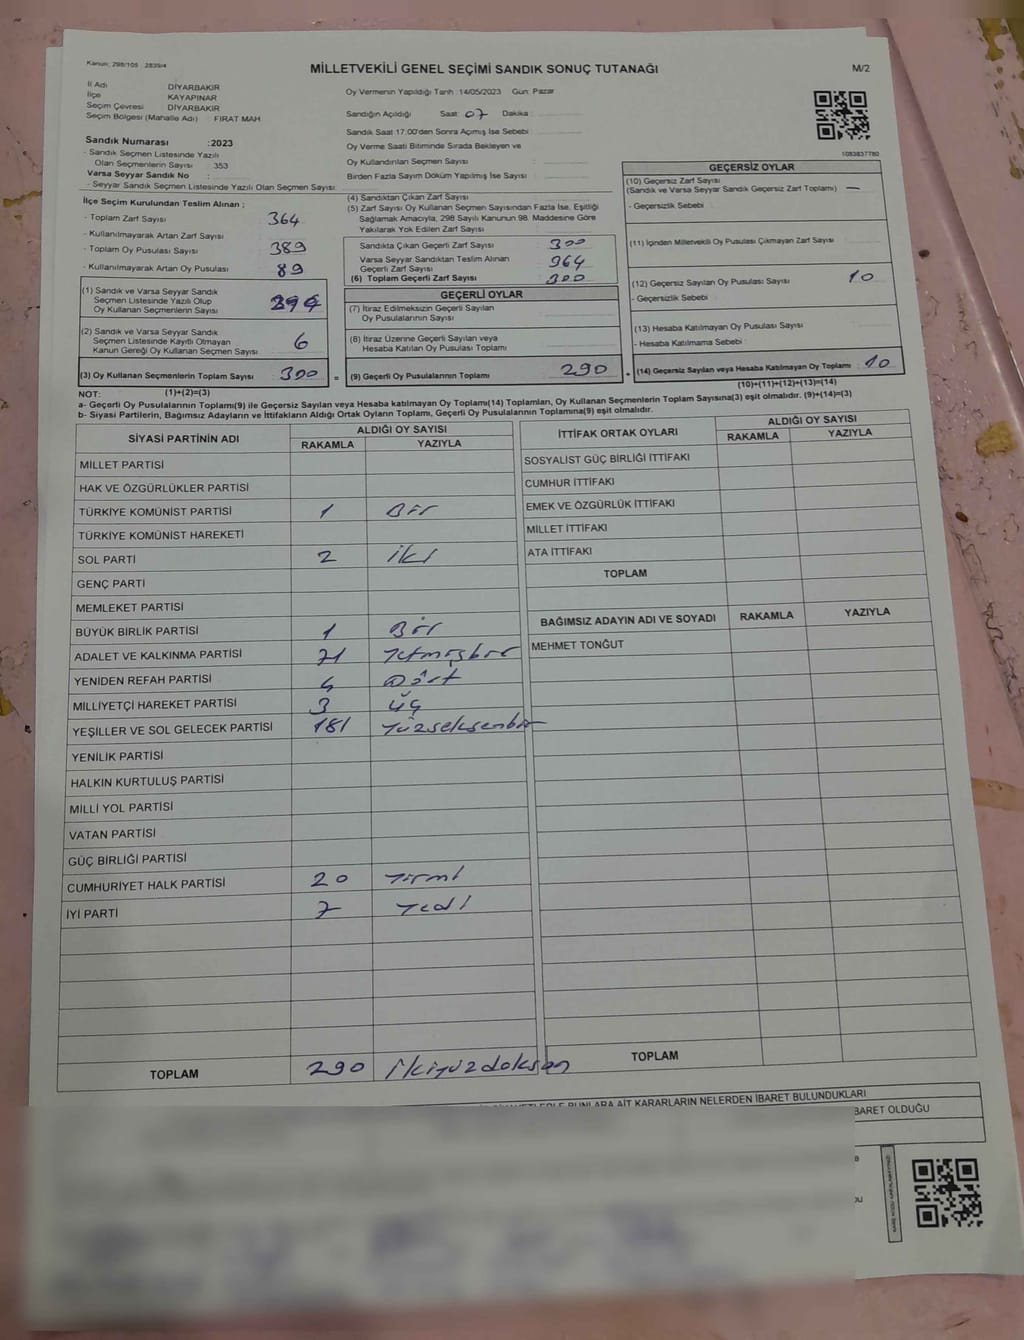 Kanun: 298/105 2839/4
MİLLETVEKİLİ GENEL SEÇİMİ SANDIK SONUÇ TUTANAĞI
M/2
İl Adı DİYARBAKIR
İlçe KAYAPINAR
Seçim Çevresi DİYARBAKIR
Seçim Bölgesi (Mahalle Adı) FIRAT MAH.
Sandık Numarası :2023
- Sandık Seçmen Listesinde Yazılı
Olan Seçmenlerin Sayısı 353
Varsa Seyyar Sandık No
- Seyyar Sandık Seçmen Listesinde Yazılı Olan Seçmen Sayısı:
Oy Vermenin Yapıldığı Tarih :14/05/2023 Gün: Pazar
Sandığın Açıldığı Saat: 07 Dakika :
Sandık Saat 17:00'den Sonra Açımış İse Sebebi :
Oy Verme Saati Bitiminde Sırada Bekleyen ve
Oy Kullandırılan Seçmen Sayısı :
Birden Fazla Sayım Döküm Yapılmış İse Sayısı :
1083837780
İlçe Seçim Kurulundan Teslim Alınan ;
- Toplam Zarf Sayısı 364
- Kullanılmayarak Artan Zarf Sayısı
- Toplam Oy Pusulası Sayısı 389
- Kullanılmayarak Artan Oy Pusulası 89
(1) Sandık ve Varsa Seyyar Sandık
Seçmen Listesinde Yazılı Olup
Oy Kullanan Seçmenlerin Sayısı
(2) Sandık ve Varsa Seyyar Sandık
Seçmen Listesinde Kayıtlı Olmayan
Kanun Gereği Oy Kullanan Seçmen Sayısı 6
(3) Oy Kullanan Seçmenlerin Toplam Sayısı 300 =
(4) Sandıktan Çıkan Zarf Sayısı
(5) Zarf Sayısı Oy Kullanan Seçmen Sayısından Fazla İse, Eşitliği
Sağlamak Amacıyla, 298 Sayılı Kanunun 98. Maddesine Göre
Yakılarak Yok Edilen Zarf Sayısı
Sandıkta Çıkan Geçerli Zarf Sayısı 300
Varsa Seyyar Sandıktan Teslim Alınan
Geçerli Zarf Sayısı 364
(6) Toplam Geçerli Zarf Sayısı 300
GEÇERLİ OYLAR
(7) İtiraz Edilmeksizin Geçerli Sayılan
Oy Pusulalarının Sayısı
(8) İtiraz Üzerine Geçerli Sayılan veya
Hesaba Katılan Oy Pusulası Toplamı
(9) Geçerli Oy Pusulalarının Toplamı 290 +
GEÇERSİZ OYLAR
(10) Geçersiz Zarf Sayısı
(Sandık ve Varsa Seyyar Sandık Geçersiz Zarf Toplamı) —
- Geçersizlik Sebebi
(11) İçinden Milletvekili Oy Pusulası Çıkmayan Zarf Sayısı
(12) Geçersiz Sayılan Oy Pusulası Sayısı 10
- Geçersizlik Sebebi
(13) Hesaba Katılmayan Oy Pusulası Sayısı
- Hesaba Katılmama Sebebi
(14) Geçersiz Sayılan veya Hesaba Katılmayan Oy Toplamı 10
NOT: (1)+(2)=(3)
(10)+(11)+(12)+(13)=(14)
a- Geçerli Oy Pusulalarının Toplamı(9) ile Geçersiz Sayılan veya Hesaba katılmayan Oy Toplamı(14) Toplamları, Oy Kullanan Seçmenlerin Toplam Sayısına(3) eşit olmalıdır. (9)+(14)=(3)
b- Siyasi Partilerin, Bağımsız Adayların ve İttifakların Aldığı Ortak Oyların Toplamı, Geçerli Oy Pusulalarının Toplamına(9) eşit olmalıdır.
SİYASİ PARTİNİN ADI ALDIĞI OY SAYISI
RAKAMLA YAZIYLA
MİLLET PARTİSİ
HAK VE ÖZGÜRLÜKLER PARTİSİ
TÜRKİYE KOMÜNİST PARTİSİ 1 Bir
TÜRKİYE KOMÜNİST HAREKETİ
SOL PARTİ 2 iki
GENÇ PARTİ
MEMLEKET PARTİSİ
BÜYÜK BİRLİK PARTİSİ 1 Bir
ADALET VE KALKINMA PARTİSİ 71 Yetmişbir
YENİDEN REFAH PARTİSİ 4 Dört
MİLLİYETÇİ HAREKET PARTİSİ 3 üç
YEŞİLLER VE SOL GELECEK PARTİSİ 181 Yüzseksenbir
YENİLİK PARTİSİ
HALKIN KURTULUŞ PARTİSİ
MİLLİ YOL PARTİSİ
VATAN PARTİSİ
GÜÇ BİRLİĞİ PARTİSİ
CUMHURİYET HALK PARTİSİ 20 Yirmi
İYİ PARTİ 7 Yedi
TOPLAM 290 ikiyüzdoksan
İTTİFAK ORTAK OYLARI ALDIĞI OY SAYISI
RAKAMLA YAZIYLA
SOSYALİST GÜÇ BİRLİĞİ İTTİFAKI
CUMHUR İTTİFAKI
EMEK VE ÖZGÜRLÜK İTTİFAKI
MİLLET İTTİFAKI
ATA İTTİFAKI
TOPLAM
BAĞIMSIZ ADAYIN ADI VE SOYADI RAKAMLA YAZIYLA
MEHMET TONĞUT
TOPLAM
BUNLARA AİT KARARLARIN NELERDEN İBARET BULUNDUKLARI
BARET OLDUĞU